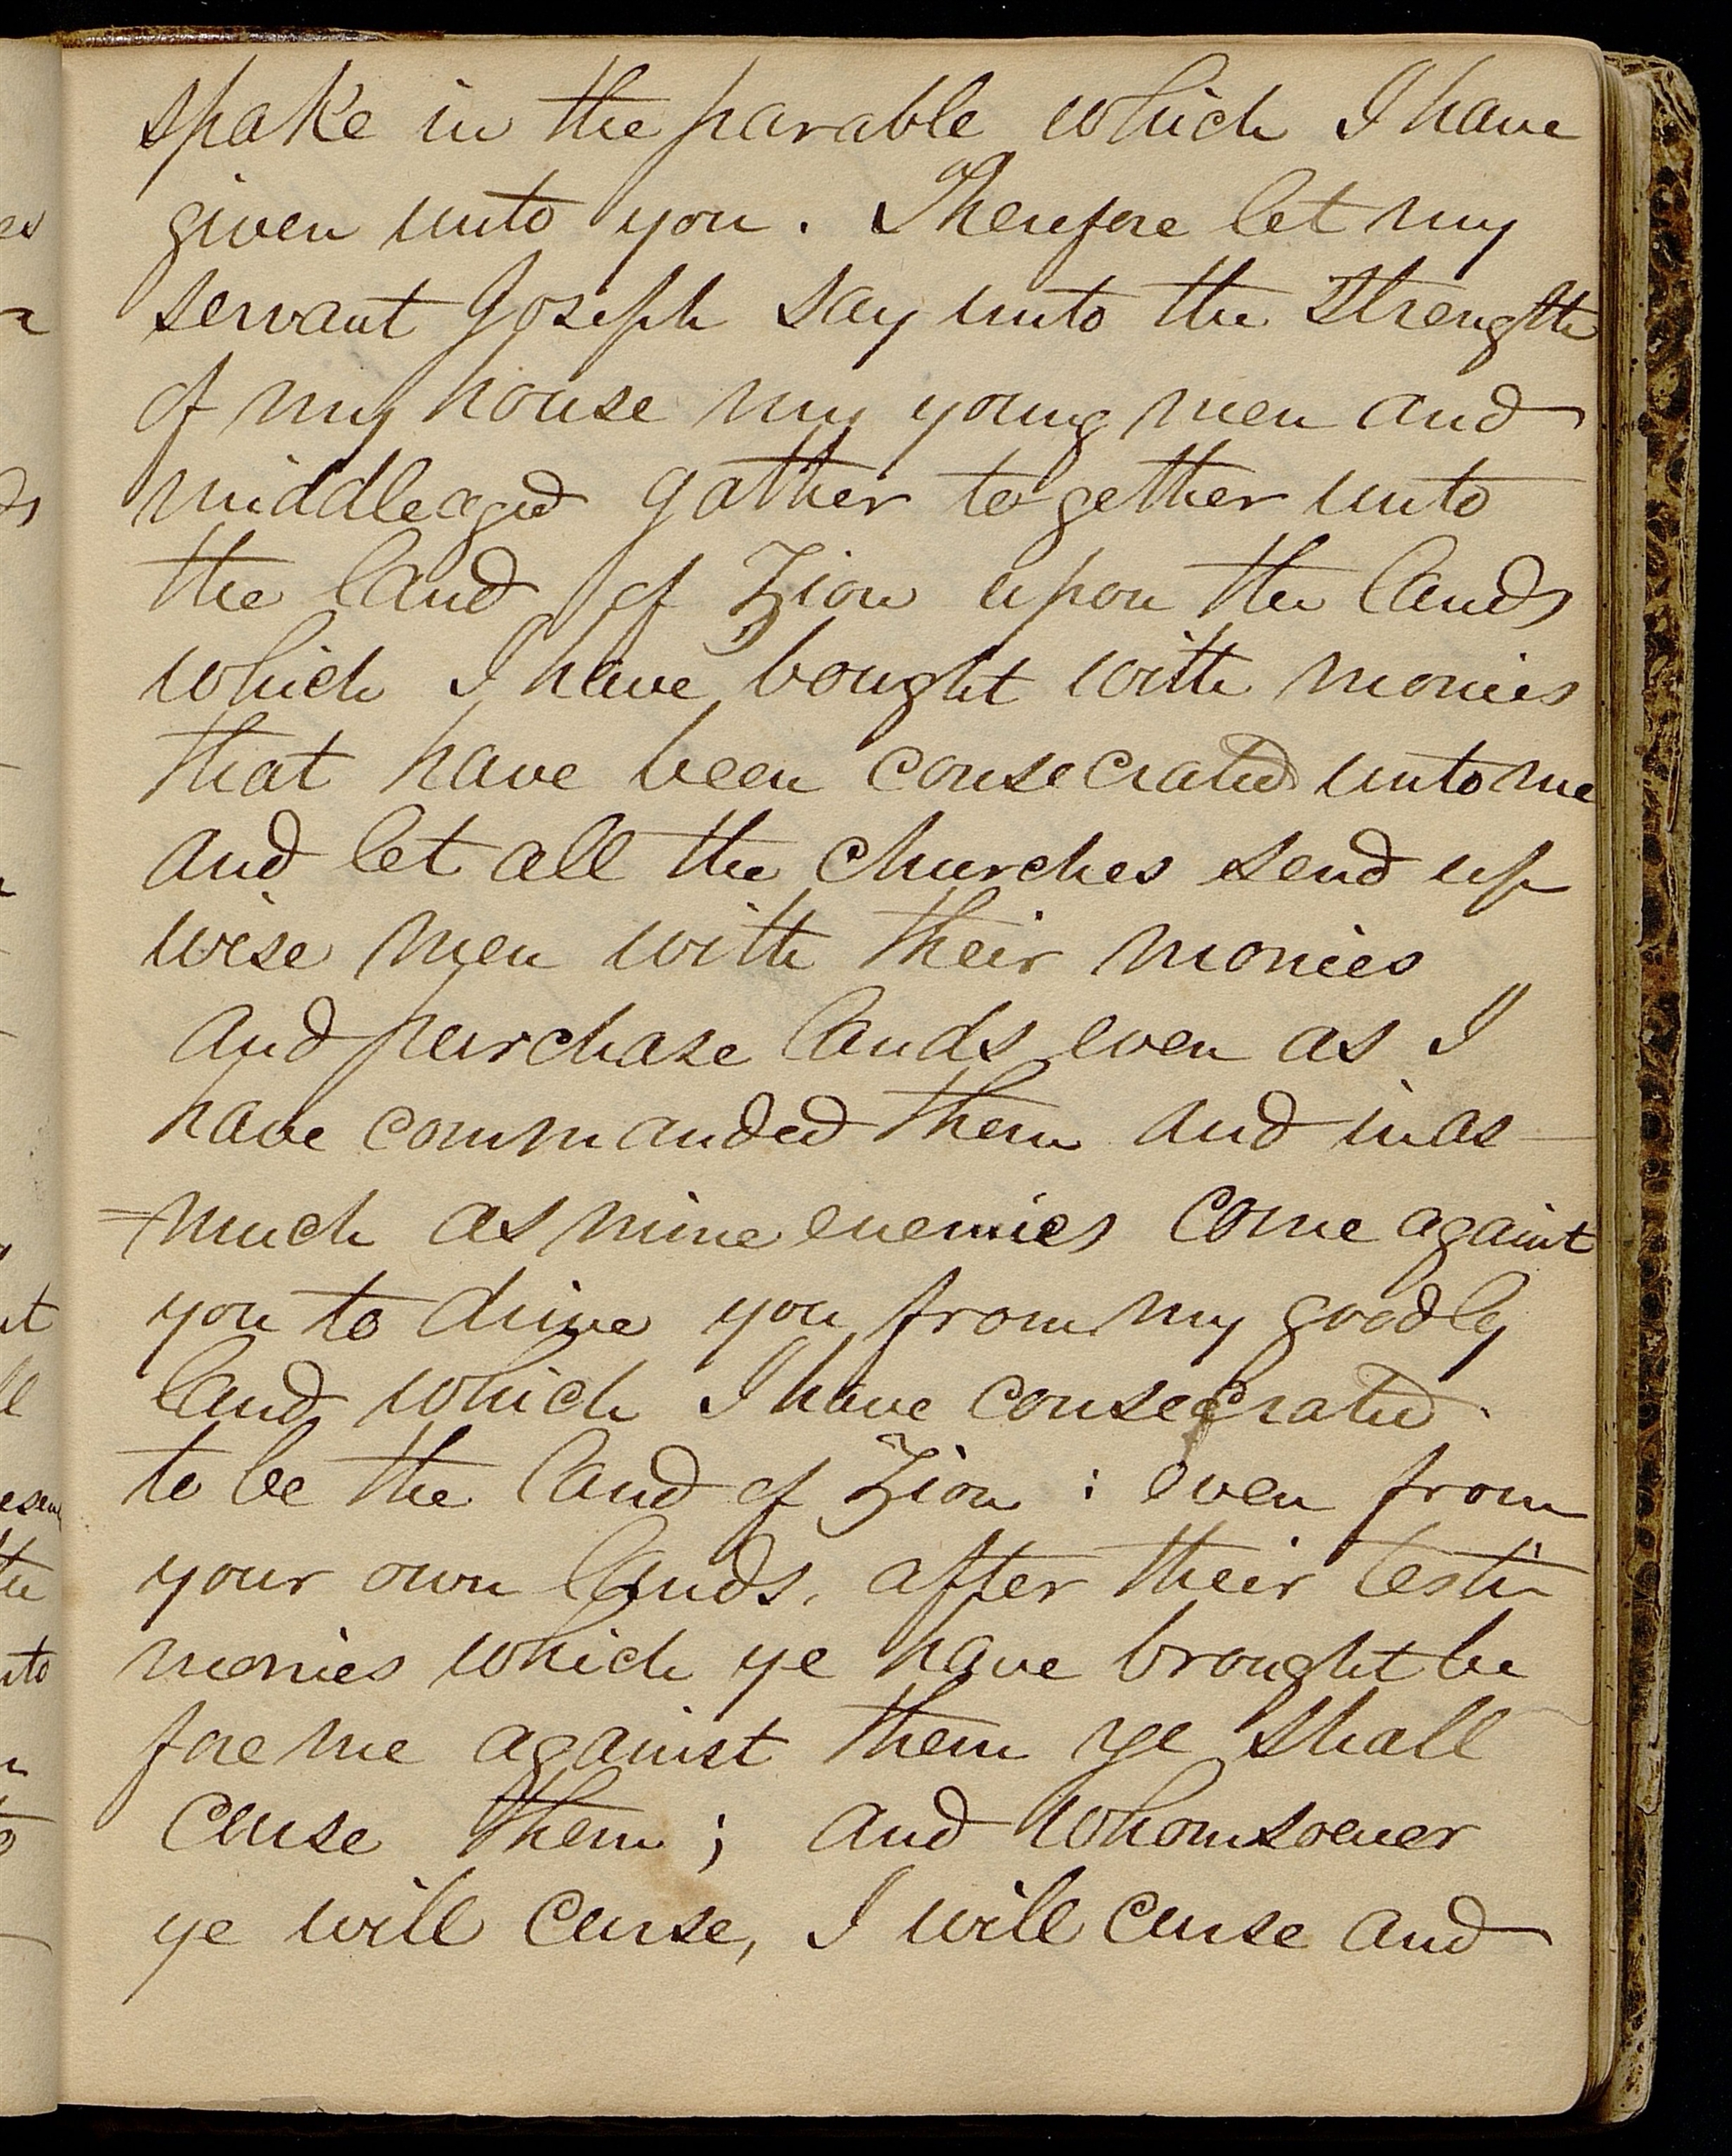 spake in the parable which I have
given unto you. Therefore let my
servant Joseph say unto the strength
of my house my young men and
middleaged gather together unto
the land of Zion upon the lands
which I have bought with monies
that have been consecrated unto me
and let all the churches send up
wise men with their monies
and purchase lands even as I
have commanded them and inas
=much as mine enemies come against
you to drive you from my goodly
land which I have consecrated
to be the land of Zion : even from
your own lands, after their testi
monies which ye have brought be
fore me against them ye shall
curse them ; and whomsoever
ye will curse, I will curse and